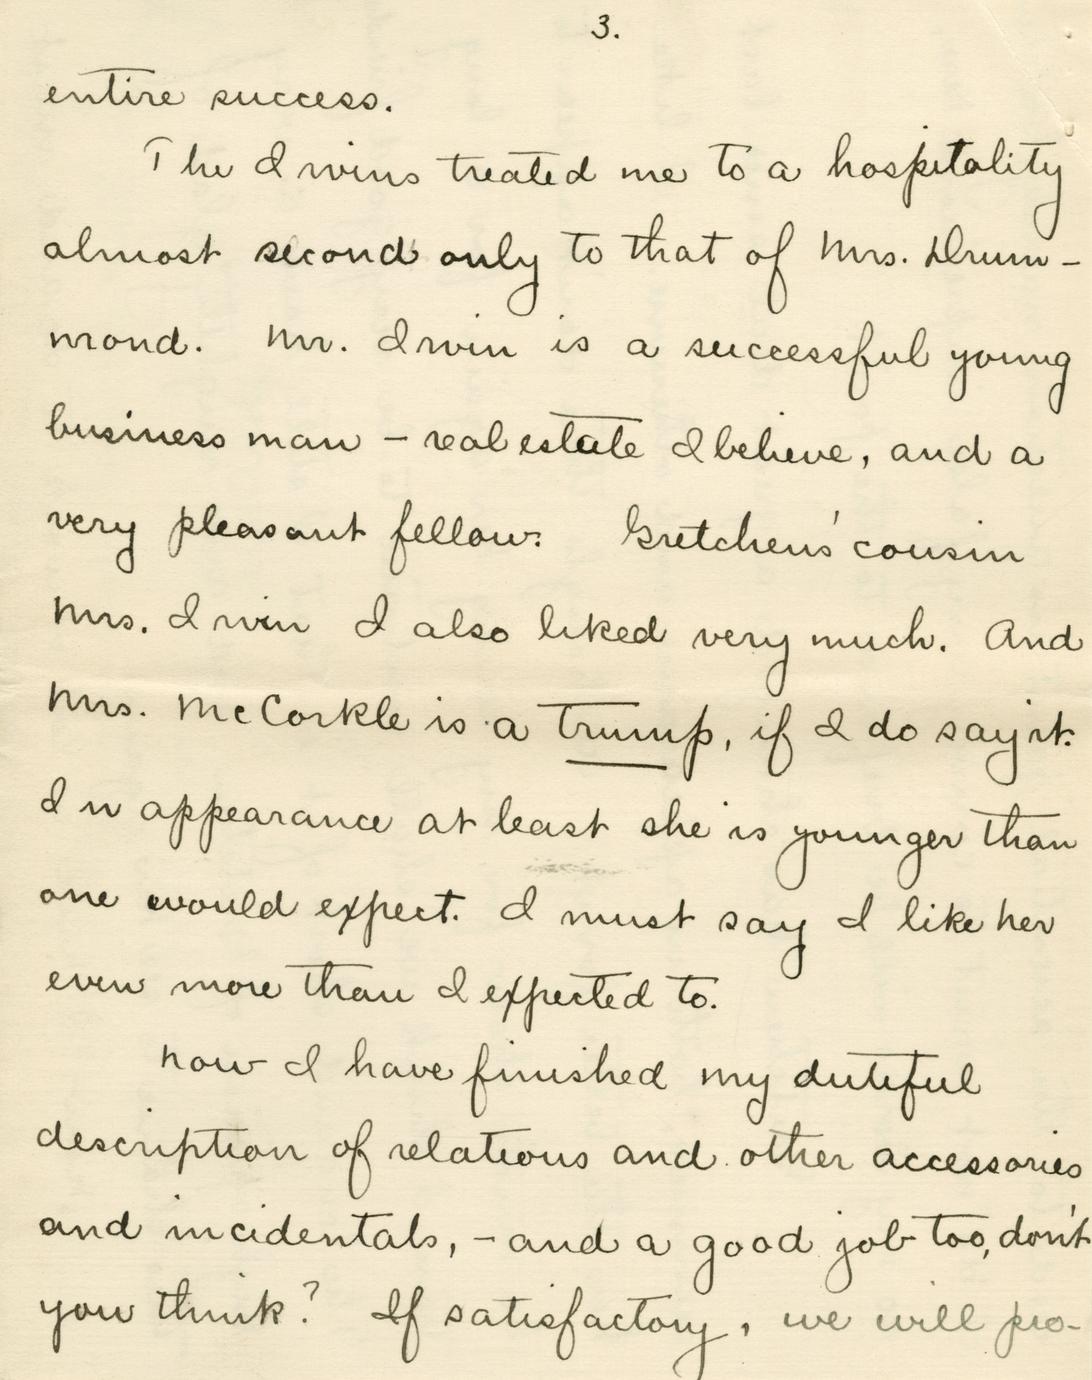 3.
entire success.
The Irwins treated me to a hospitality
almost second only to that of Mrs. Drum-
mond. Mr. Irwin is a successful young
business man – real estate I believe, and a
very pleasant fellow. Gretchens' cousin
Mrs. Irwin I also liked very much. And
Mrs. McCorkle is a trump, if I do say it.
In appearance at least she is younger than
one would expect. I must say I like her
even more than I expected to.
Now I have finished my dutiful
description of relations and other accessories
and incidentals, – and a good job too, don't
you think? If satisfactory, we will pro-